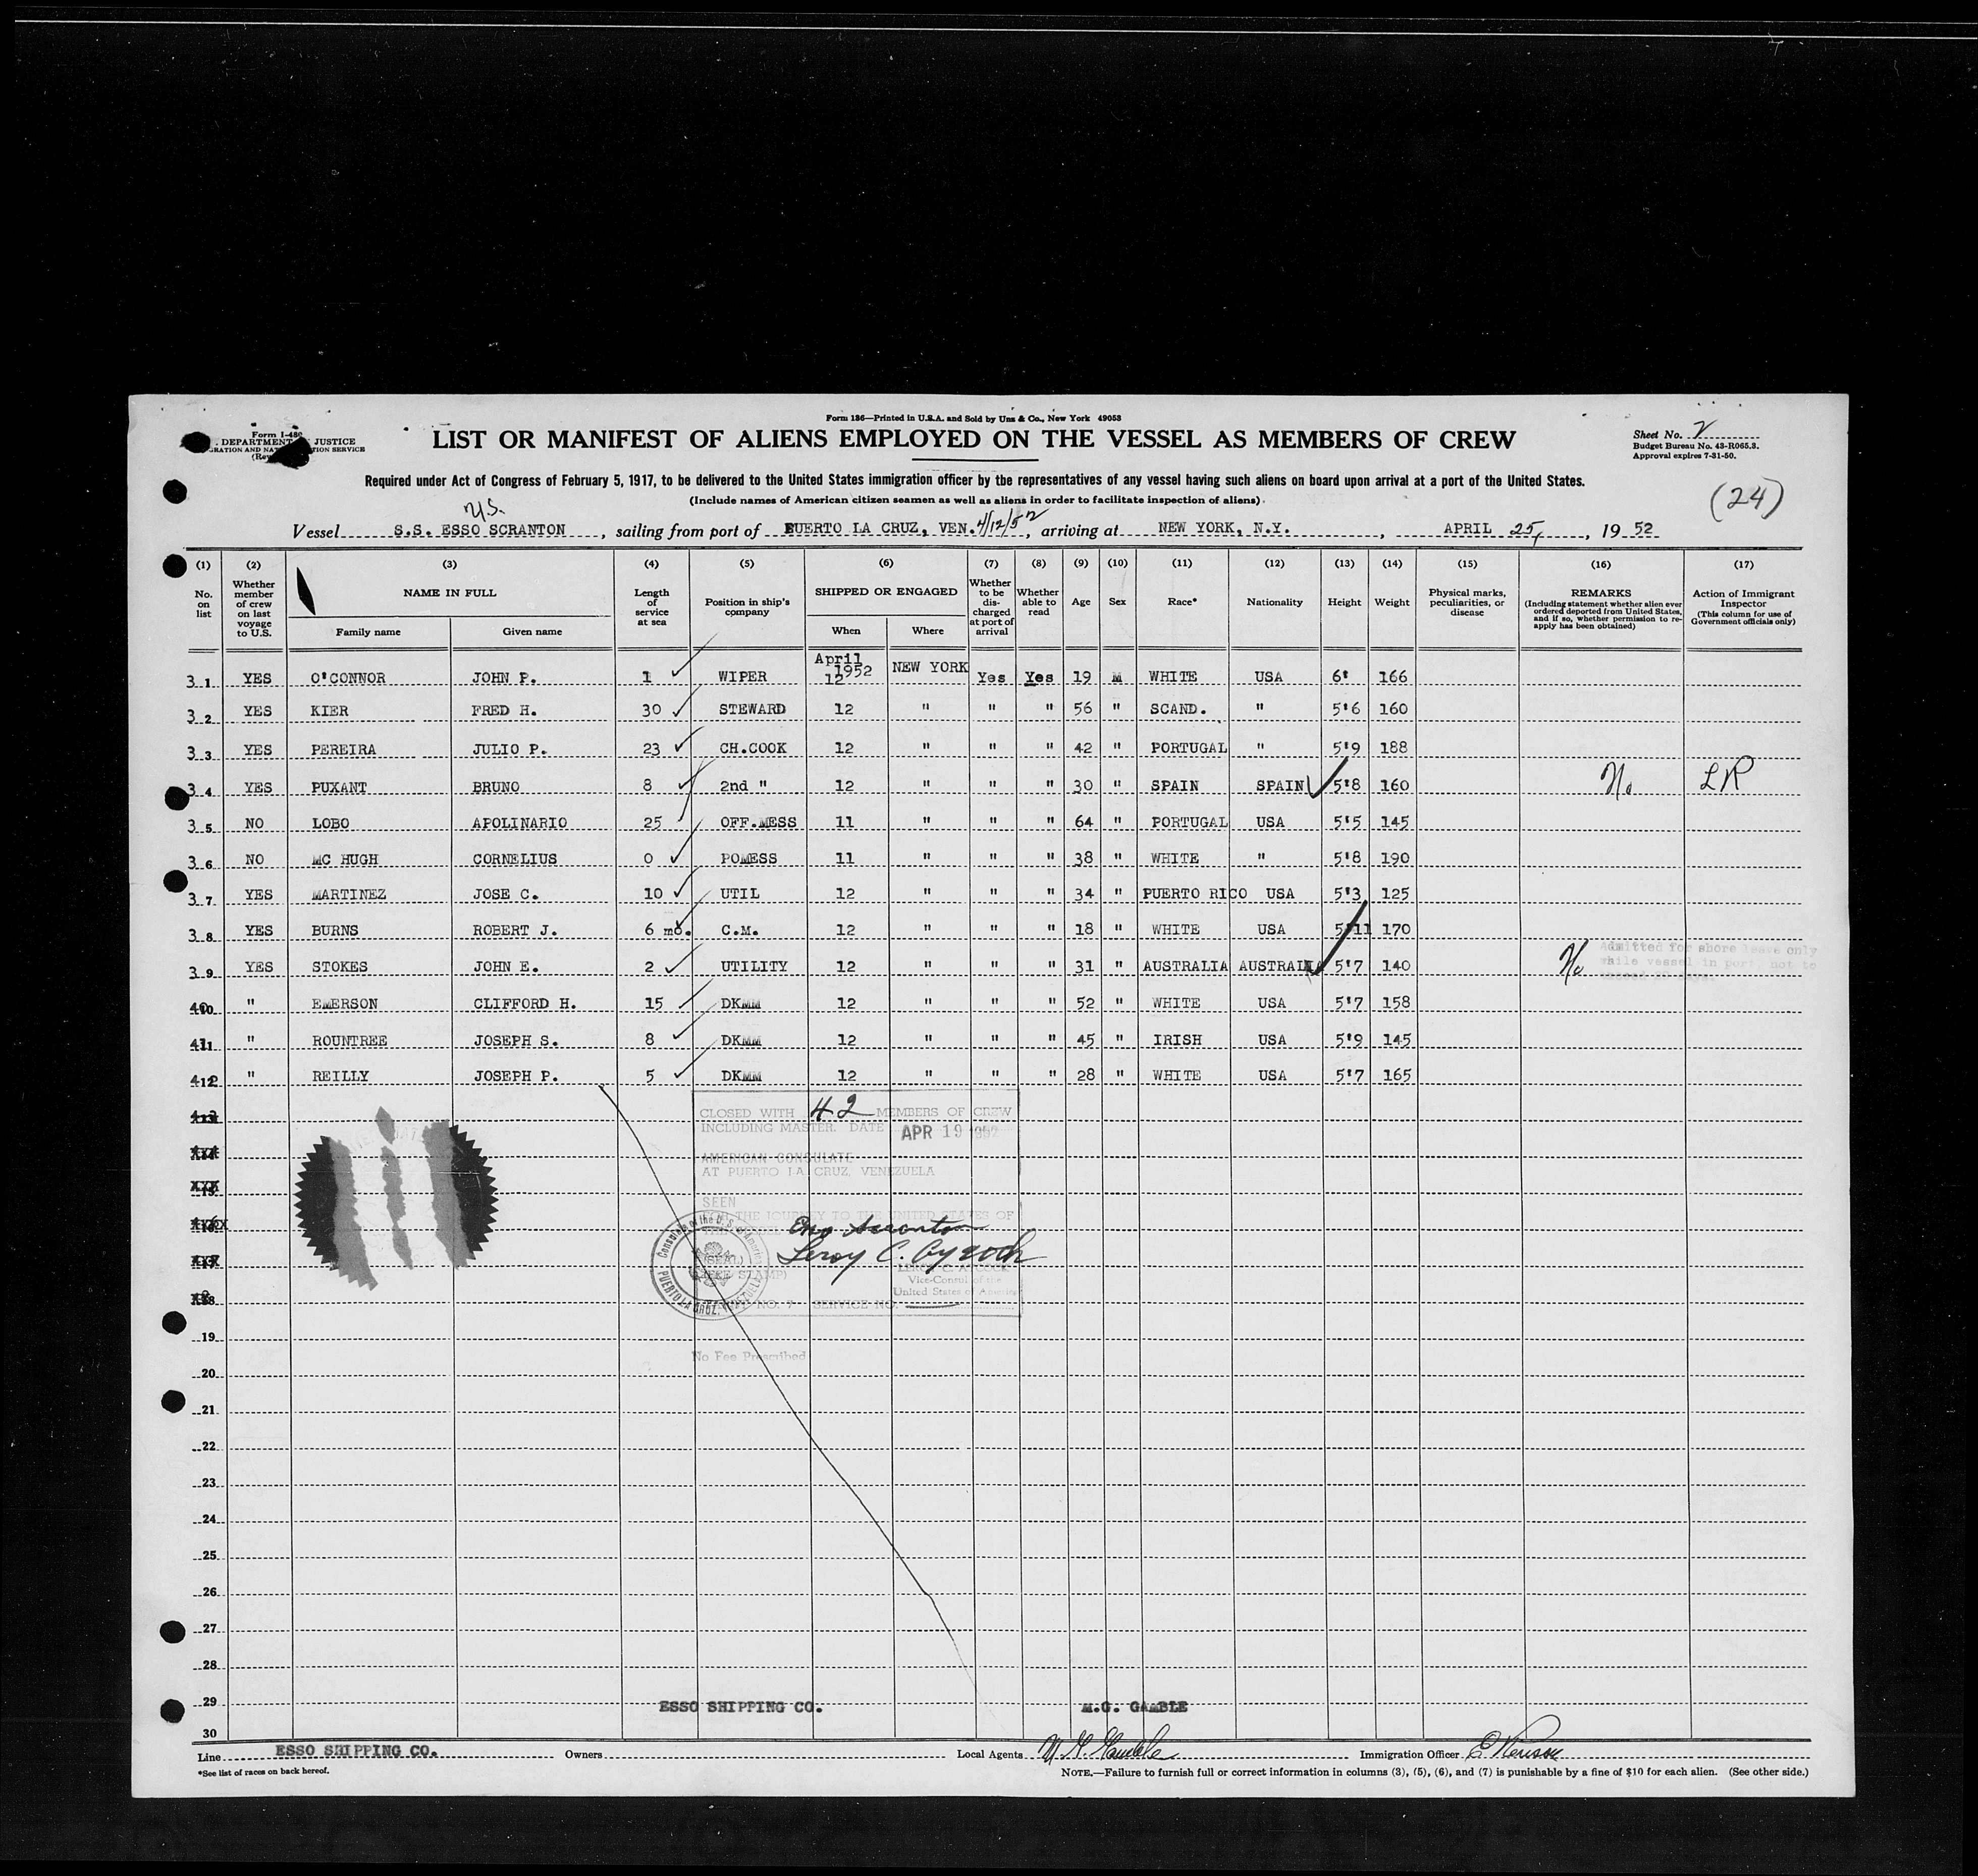 Form 136—Printed in U.S.A. and Sold by Unz & Co., New York 49053
Form I-480
DEPARTMENT JUSTICE
(Rev
LIST OR MANIFEST OF ALIENS EMPLOYED ON THE VESSEL AS MEMBERS OF CREW
Sheet No. 2
Budget Bureau No. 43-R065.3.
Approval expires 7-31-50.
Required under Act of Congress of February 5, 1917, to be delivered to the United States immigration officer by the representatives of any vessel having such aliens on board upon arrival at a port of the United States.
(Include names of American citizen seamen as well as aliens in order to facilitate inspection of aliens)
(24)
U.S.
Vessel S.S. ESSO SCRANTON , sailing from port of PUERTO LA CRUZ, VEN. 4/12/52 , arriving at NEW YORK, N.Y. , APRIL 25, , 19 52
(1) (2) (3) (4) (5) (6) (7) (8) (9) (10) (11) (12) (13) (14) (15) (16) (17)
No. on list
Whether member of crew on last voyage to U.S.
NAME IN FULL
Family name Given name
Length of service at sea
Position in ship's company
SHIPPED OR ENGAGED
When Where
Whether to be discharged at port of arrival
Whether able to read
Age
Sex
Race*
Nationality
Height
Weight
Physical marks, peculiarities, or disease
REMARKS
(Including statement whether alien ever ordered deported from United States, and if so, whether permission to re-apply has been obtained)
Action of Immigrant Inspector
(This column for use of Government officials only)
31 YES O'CONNOR JOHN P. 1 WIPER April 1952 12 NEW YORK Yes Yes 19 M WHITE USA 6' 166
32 YES KIER FRED H. 30 STEWARD 12 " " " 56 " SCAND. " 5'6 160
33 YES PEREIRA JULIO P. 23 CH.COOK 12 " " " 42 " PORTUGAL " 5'9 188
34 YES PUXANT BRUNO 8 2nd " 12 " " " 30 " SPAIN SPAIN 5'8 160 No LR
35 NO LOBO APOLINARIO 25 OFF.MESS 11 " " " 64 " PORTUGAL USA 5'5 145
36 NO MC HUGH CORNELIUS 0 POMESS 11 " " " 38 " WHITE " 5'8 190
37 YES MARTINEZ JOSE C. 10 UTIL 12 " " " 34 " PUERTO RICO USA 5'3 125
38 YES BURNS ROBERT J. 6 mo. C.M. 12 " " " 18 " WHITE USA 5'11 170
39 YES STOKES JOHN E. 2 UTILITY 12 " " " 31 " AUSTRALIA AUSTRALIA 5'7 140 No Admitted for shore leave only
while vessel in port not to
40 " EMERSON CLIFFORD H. 15 DKMM 12 " " " 52 " WHITE USA 5'7 158
41 " ROUNTREE JOSEPH S. 8 DKMM 12 " " " 45 " IRISH USA 5'9 145
42 " REILLY JOSEPH P. 5 DKMM 12 " " " 28 " WHITE USA 5'7 165
CLOSED WITH 42 MEMBERS OF CREW
INCLUDING MASTER. DATE APR 19 1952
AMERICAN CONSULATE
AT PUERTO LA CRUZ, VENEZUELA
SEEN
THE JOURNEY TO THE UNITED STATES OF
Esso Scranton
(SEAL)
Vice-Consul of the
United States of America
NO. 7 SERVICE NO.
No Fee Prescribed
19
20
21
22
23
24
25
26
27
28
29
30
ESSO SHIPPING CO. M.G. GAMBLE
Line ESSO SHIPPING CO. Owners Local Agents M. G. Gamble Immigration Officer
*See list of races on back hereof.
NOTE.—Failure to furnish full or correct information in columns (3), (5), (6), and (7) is punishable by a fine of $10 for each alien. (See other side.)